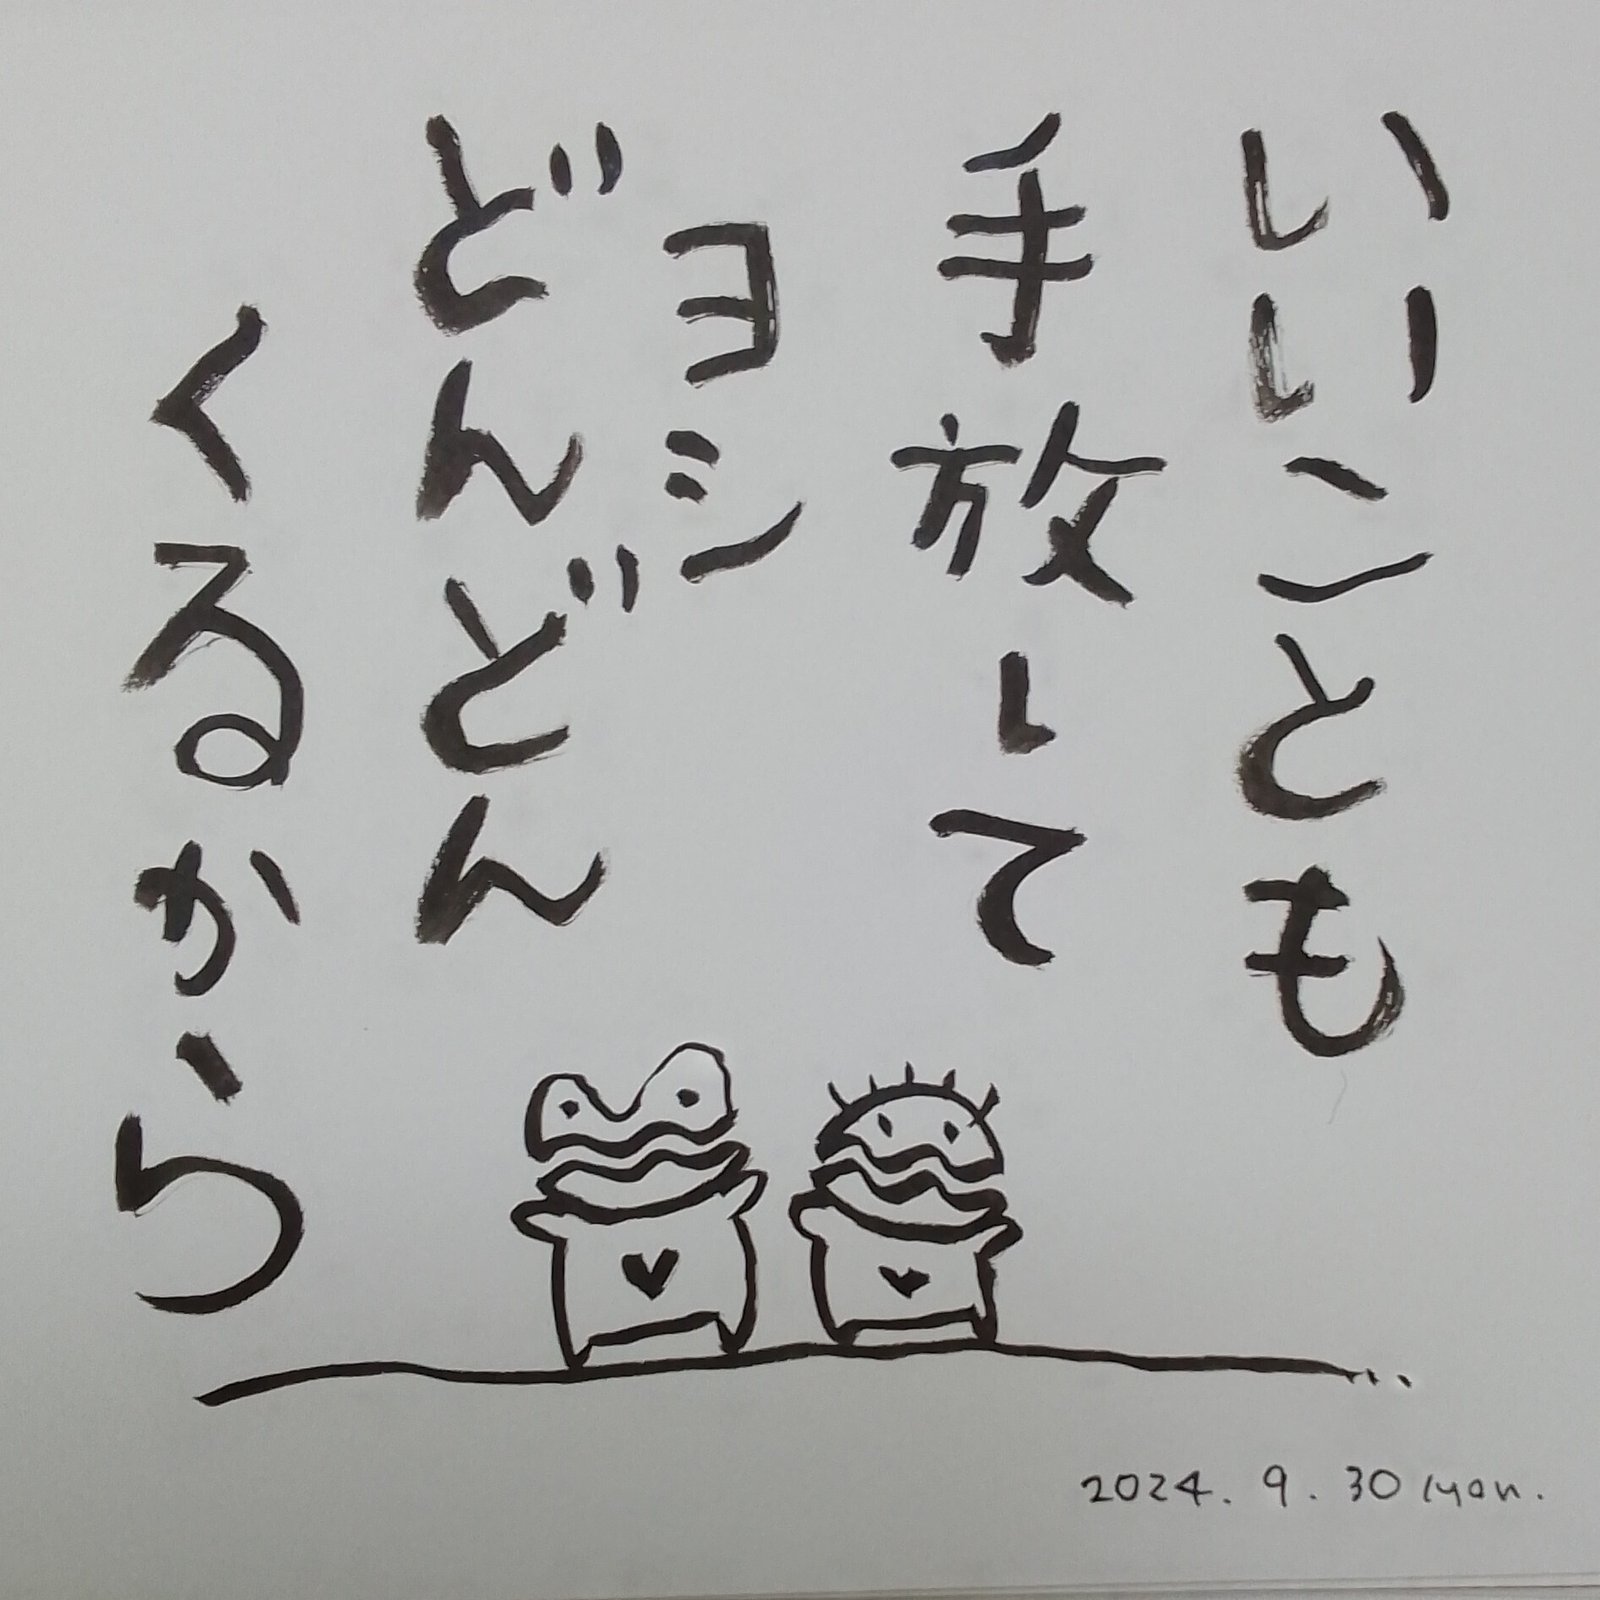 いいことも
手放して
ヨシ
どんどん
くるから
2024.9.30 iyon.